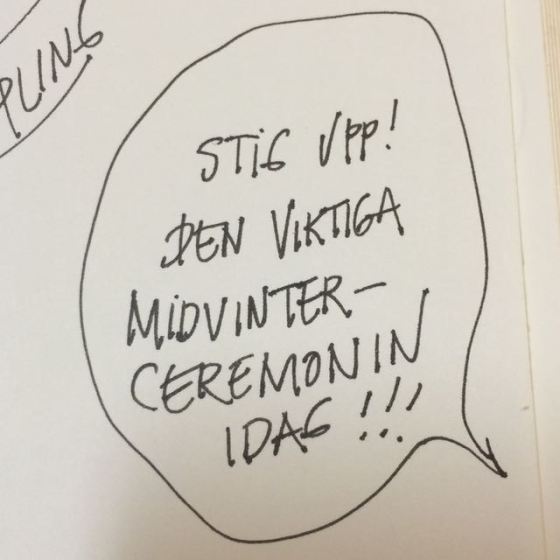 PLING
STIG UPP!
DEN VIKTIGA
MIDVINTER-
CEREMONIN
IDAG!!!